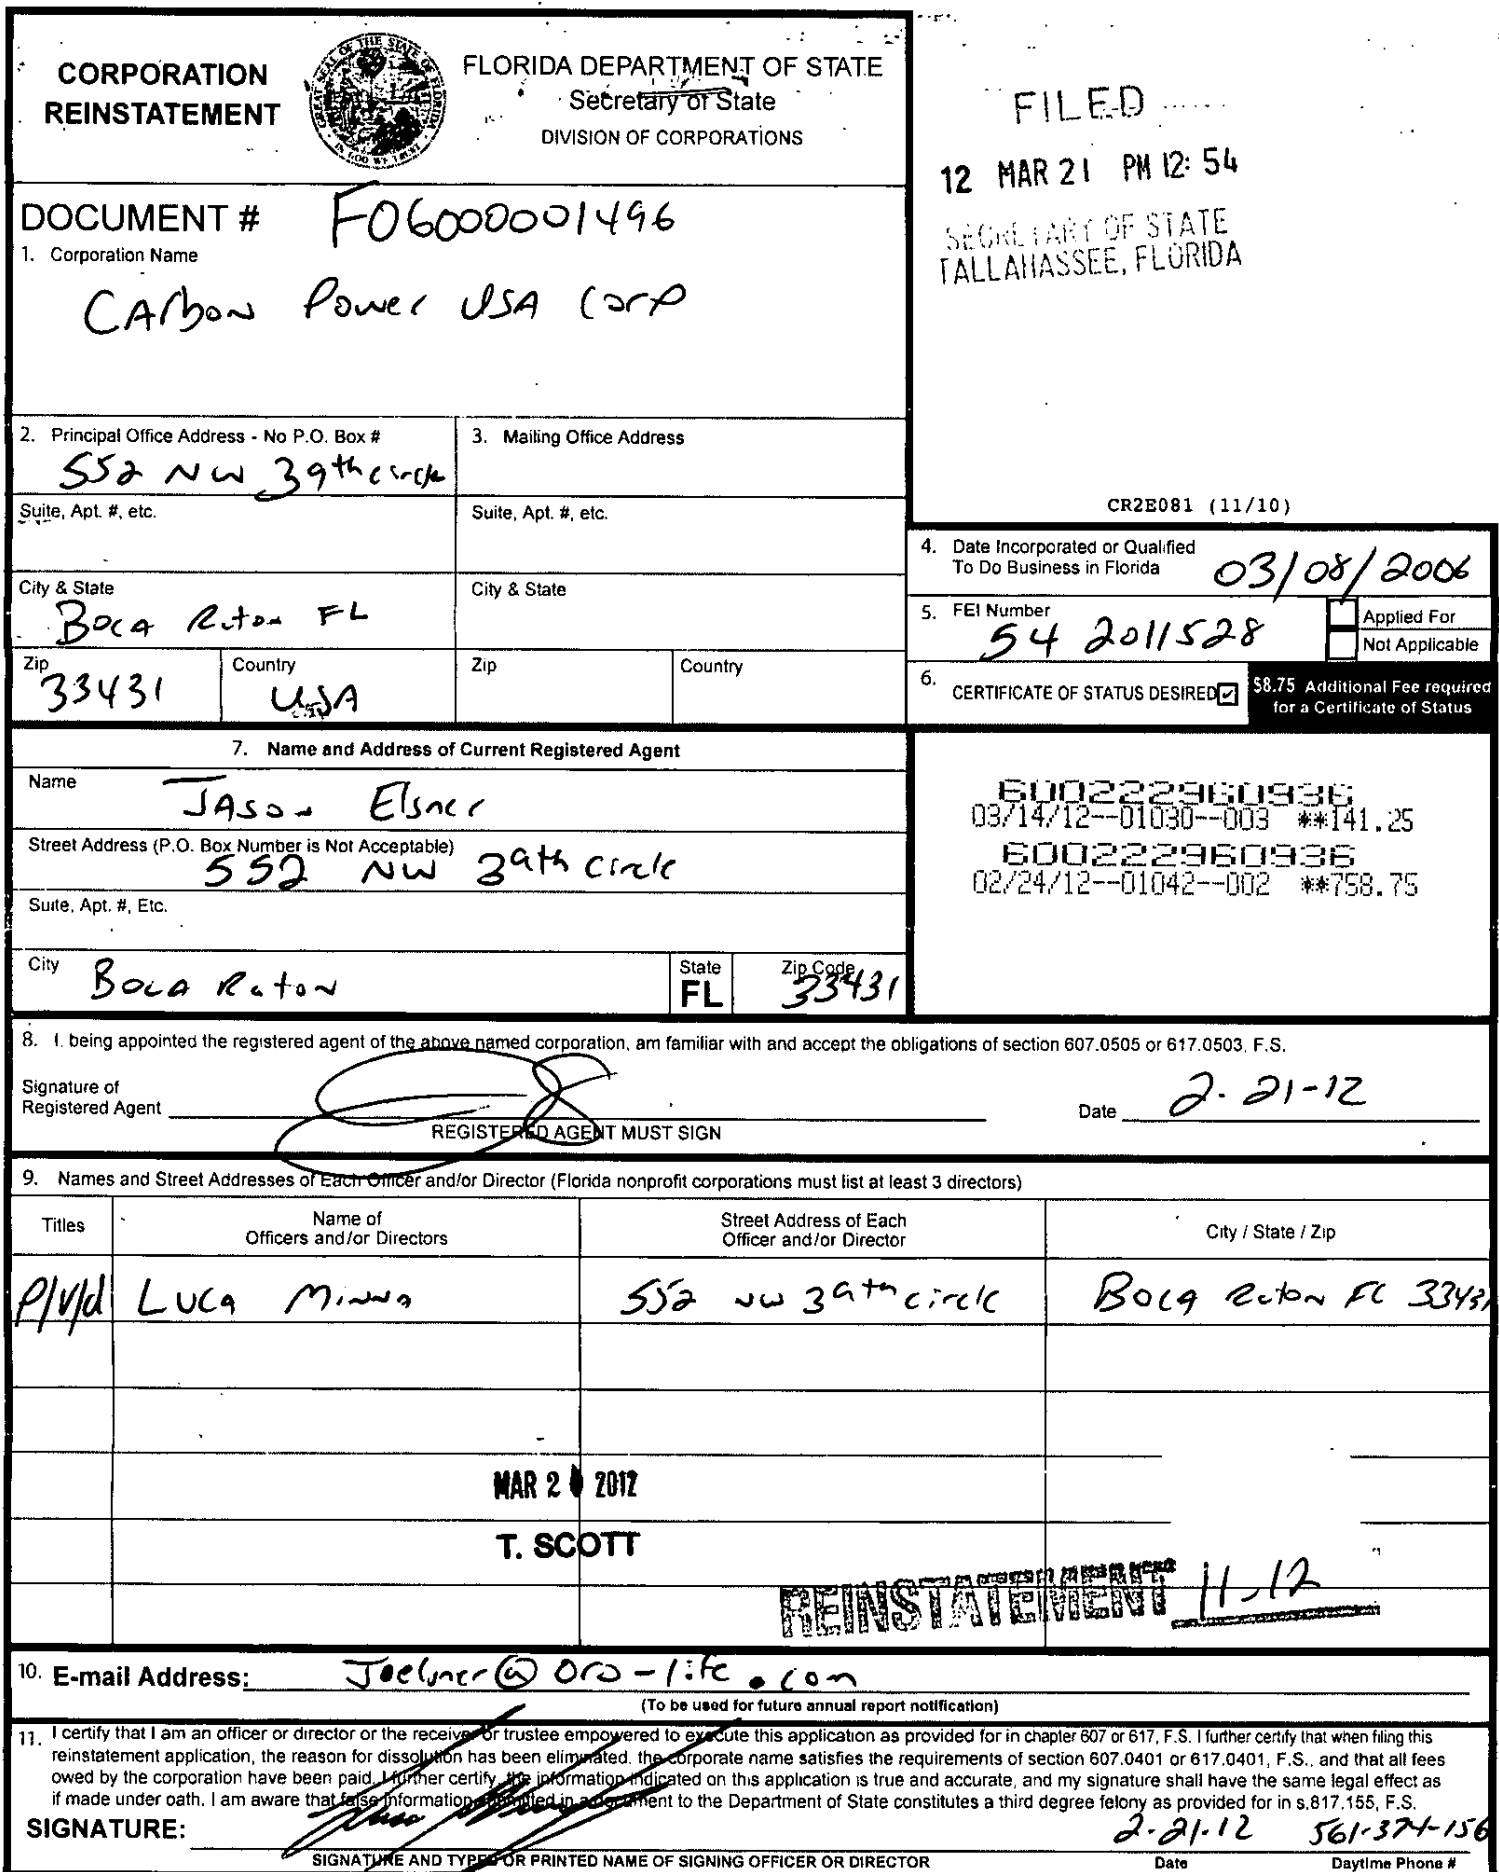 CORPORATION
REINSTATEMENT
FLORIDA DEPARTMENT OF STATE
Secretary of State
DIVISION OF CORPORATIONS
FILED
12 MAR 21 PM 12:54
SECRETARY OF STATE
TALLAHASSEE, FLORIDA
DOCUMENT # F06000001496
1. Corporation Name
CArbon Power USA Corp
2. Principal Office Address - No P.O. Box #
552 NW 39th circle
3. Mailing Office Address
Suite, Apt. #, etc.
Suite, Apt. #, etc.
City & State
Boca Raton FL
City & State
Zip
33431
Country
USA
Zip
Country
CR2E081 (11/10)
4. Date Incorporated or Qualified
To Do Business in Florida 03/08/2006
5. FEI Number
54 2011528
Applied For
Not Applicable
6. CERTIFICATE OF STATUS DESIRED
$8.75 Additional Fee required
for a Certificate of Status
7. Name and Address of Current Registered Agent
Name
JASON Elsner
Street Address (P.O. Box Number is Not Acceptable)
552 NW 39th circle
Suite, Apt. #, Etc.
City Boca Raton
State
FL
Zip Code
33431
600222960936
03/14/12--01030--003 **141.25
600222960936
02/24/12--01042--002 **758.75
8. I, being appointed the registered agent of the above named corporation, am familiar with and accept the obligations of section 607.0505 or 617.0503, F.S.
Signature of
Registered Agent
REGISTERED AGENT MUST SIGN
Date 2-21-12
9. Names and Street Addresses of Each Officer and/or Director (Florida nonprofit corporations must list at least 3 directors)
Titles
Name of
Officers and/or Directors
Street Address of Each
Officer and/or Director
City / State / Zip
P/V/d Luca Minna 552 NW 39th circle Boca Raton FL 33431
MAR 2 2012
T. SCOTT
REINSTATEMENT 11-12
10. E-mail Address: Joelsner@oro-life.com
(To be used for future annual report notification)
11. I certify that I am an officer or director or the receiver or trustee empowered to execute this application as provided for in chapter 607 or 617, F.S. I further certify that when filing this
reinstatement application, the reason for dissolution has been eliminated, the corporate name satisfies the requirements of section 607.0401 or 617.0401, F.S., and that all fees
owed by the corporation have been paid. I further certify, the information indicated on this application is true and accurate, and my signature shall have the same legal effect as
if made under oath. I am aware that false information submitted in a document to the Department of State constitutes a third degree felony as provided for in s.817.155, F.S.
SIGNATURE:
2-21-12 561-374-156
SIGNATURE AND TYPED OR PRINTED NAME OF SIGNING OFFICER OR DIRECTOR
Date
Daytime Phone #